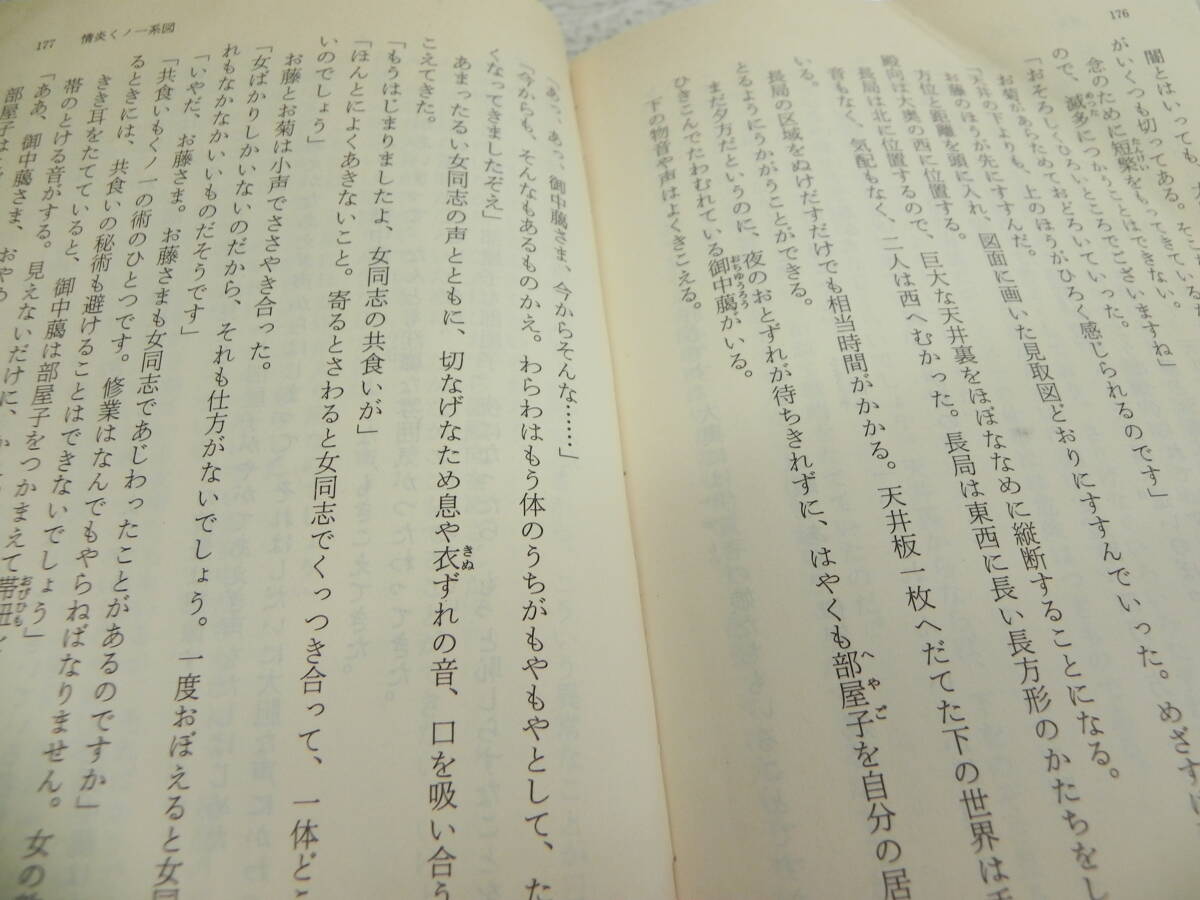 176
間とはいっても、
がいくつも切ってある。そこか
念のために短檠をもってきている
ので、滅多につかうことはできない。
「おそろしくひろいところでございますね」
お菊があらためておどろいていった。
「天井の下よりも、上のほうがひろく感じられるのです」
お藤のほうが先にすすんだ。
方位と距離を頭に入れ、図面に画いた見取図どおりにすすんでいった。めざす
殿向は大奥の西に位置する。
長局は北に位置するので、巨大な天井裏をほぼななめに縦断することになる。
音もなく、気配もなく、二人は西へむかった。長局は東西に長い長方形のかたちをし
いる。
長局の区域をぬけだすだけでも相当時間がかかる。天井板一枚へだてた下の世界は
とるようにうかがうことができる。
まだ夕方だというのに、夜のおとずれが待ちきれずに、はやくも部屋子を自分の居
ひきこんでたわむれている御中﨟がいる。
下の物音や声はよくきこえる。
177 情炎くノ一系図
「あっ、あっ、御中﨟さま、今からそんな……」
「今からも、そんなもあるものかえ。わらわはもう体のうちがもやもやとして、た
くなってきましたぞえ」
あまったるい女同志の声とともに、切なげなため息や衣ずれの音、口を吸い合う
こえてきた。
「もうはじまりましたよ、女同志の共食いが」
「ほんとによくあきないこと。寄るとさわると女同志でくっつき合って、一体どこ
いのでしょう」
お藤とお菊は小声でささやき合った。
「女ばかりしかいないのだから、それも仕方がないでしょう。一度おぼえると女同
れもなかなかいいものだそうです」
「いやだ、お藤さま。お藤さまも女同志であじわったことがあるのですか」
「共食いもくノ一の術のひとつです。修業はなんでもやらねばなりません。女の
るときには、共食いの秘術も避けることはできないでしょう」
きき耳をたてていると、御中﨟は部屋子をつかまえて帯紐
帯のとける音がする。見えないだけに、
「ああ、御中﨟さま、おやめ
部屋子は